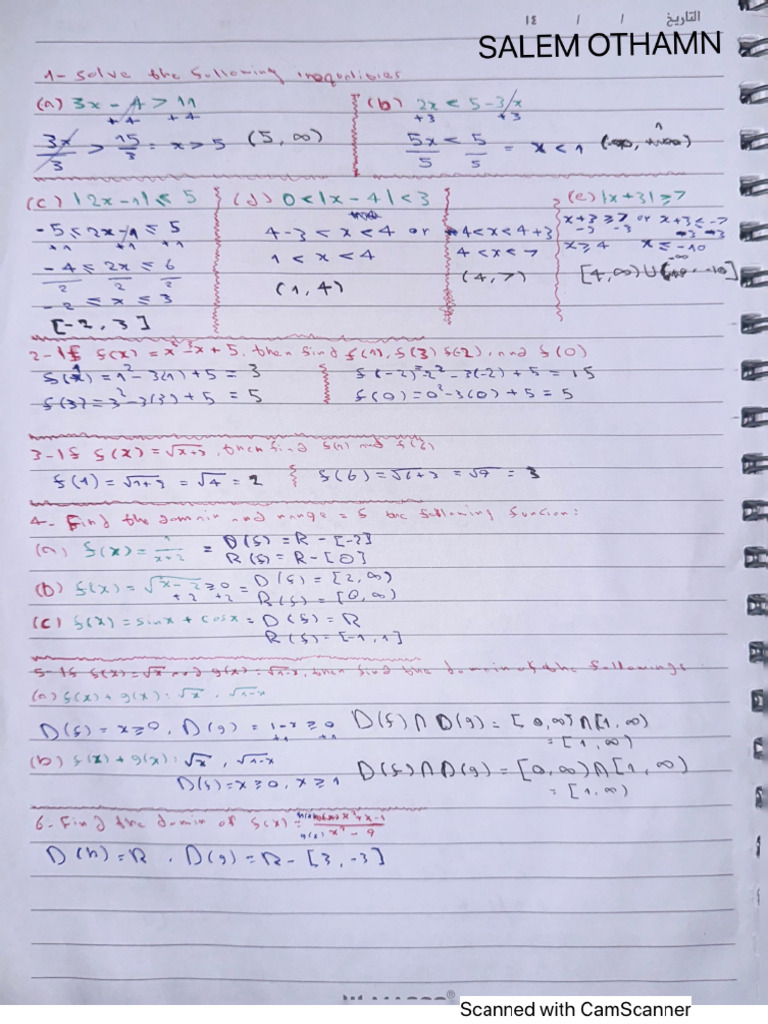 التاريخ / / ١٤
SALEM OTHAMN
1- solve the following inequalities
(a) 3x - 4 > 11
+4 +4
3x/3 > 15/3 = x > 5 (5, ∞)
(b) 2x < 5 - 3x
+3 +3
5x/5 < 5/5 = x < 1
(c) |2x - 1| ≤ 5
-5 ≤ 2x - 1 ≤ 5
+1 +1 +1
-4/2 ≤ 2x/2 ≤ 6/2
-2 ≤ x ≤ 3
[-2, 3]
(d) 0 < |x - 4| < 3
4-3 < x < 4 or 4 < x < 4+3
1 < x < 4 4 < x < 7
(1, 4) (4, 7)
(e) |x + 3| ≥ 7
x+3 ≥ 7 or x+3 ≤ -7
-3 -3 -3 -3
x ≥ 4 x ≤ -10
[4, ∞) ∪
2- If f(x) = x² - 3x + 5, then find f(1), f(3) f(-2), and f(0)
f(1) = 1² - 3(1) + 5 = 3
f(3) = 3² - 3(3) + 5 = 5
f(-2) = -2² - 3(-2) + 5 = 15
f(0) = 0² - 3(0) + 5 = 5
3- If f(x) = √x+3, then find f(1) and
f(1) = √1+3 = √4 = 2
f(6) = √6+3 = √9 = 3
4- Find the domain and range = f the following funcion:
(a) f(x) = 1/x+2 = D(f) = R - [-2]
R(f) = R - [0]
(b) f(x) = √x - 2 ≥ 0 = D(f) = [2, ∞)
+2 +2 R(f) = [0, ∞)
(c) f(x) = sinx + cosx = D(f) = R
R(f) = [-1, 1]
5- If f(x) = √x and g(x) = √1-x, then find the domain of the followings
(a) f(x) + g(x) : √x , √1-x
D(f) = x ≥ 0, D(g) = 1-x ≥ 0 D(f) ∩ D(g) = [0, ∞) ∩ [1, ∞)
+1 +1 = [1, ∞)
(b) f(x) + g(x) : √x , √1-x
D(f) = x ≥ 0, x ≥ 1 D(f) ∩ D(g) = [0, ∞) ∩ [1, ∞)
= [1, ∞)
6- Find the domin of f(x) =
g(x) x² - 9
D(h) = R , D(g) = R - [3, -3]
Scanned with CamScanner